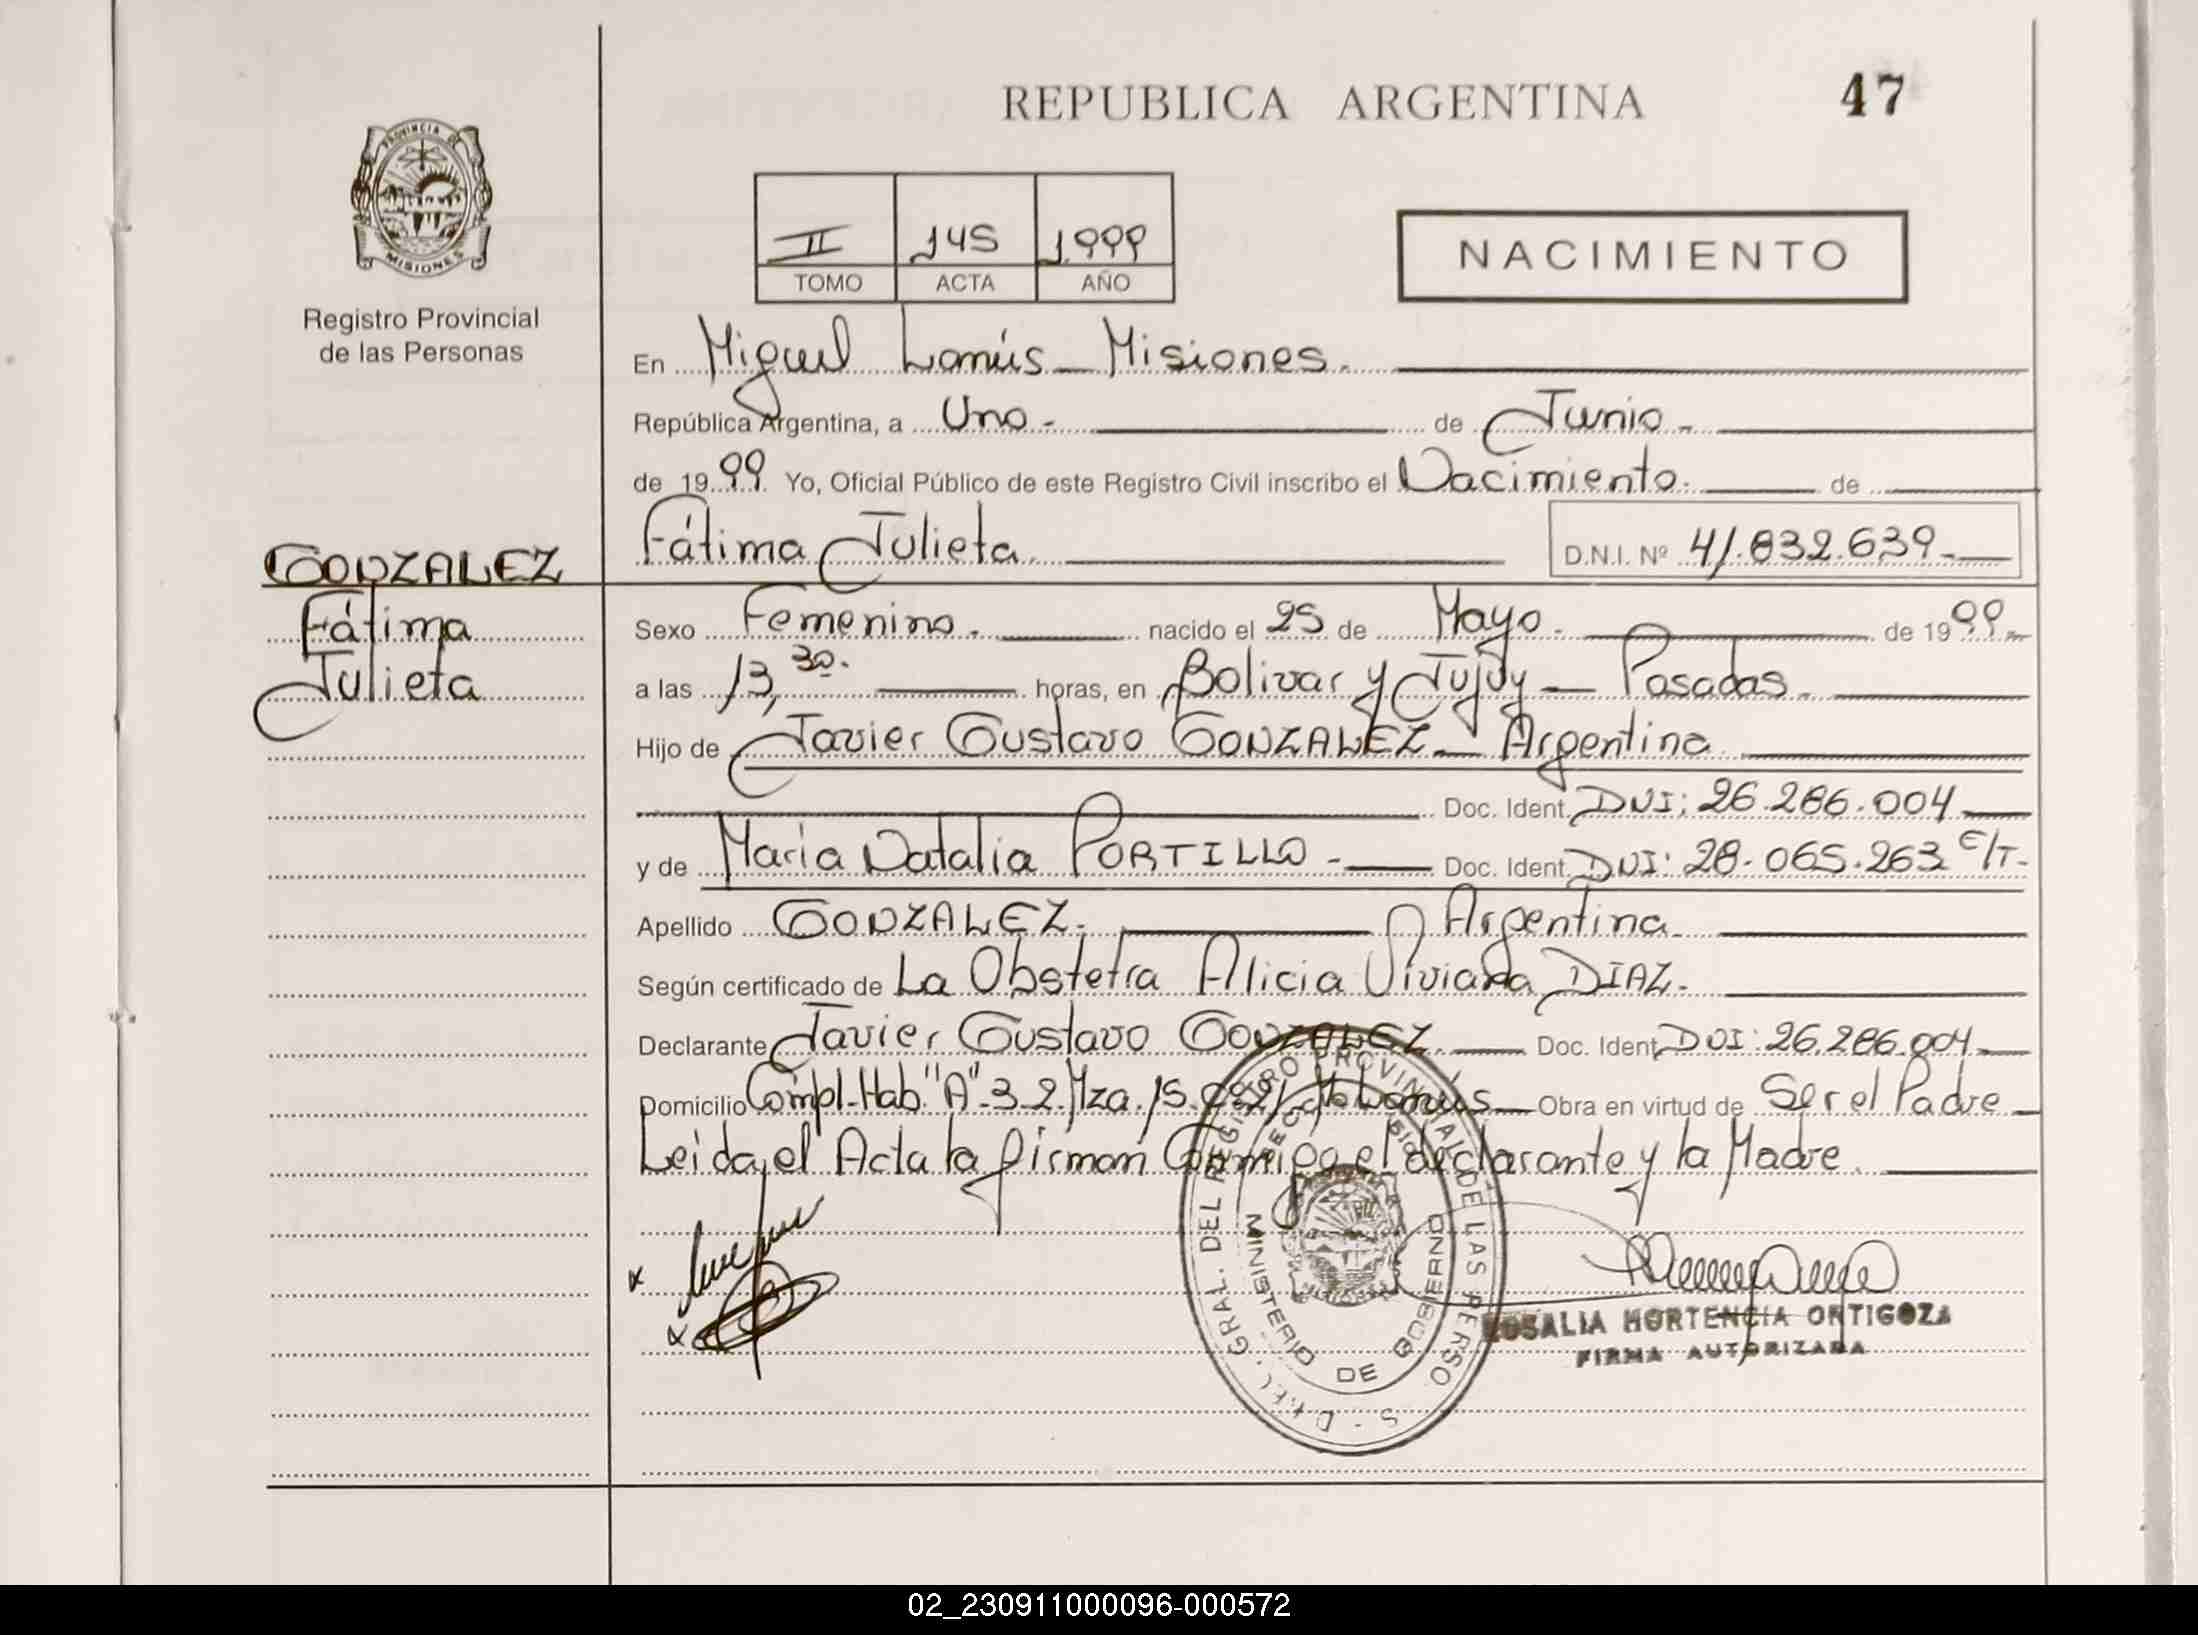 REPUBLICA ARGENTINA
47
PROVINCIA DE
MISIONES
Registro Provincial
de las Personas
II 145 1.999
TOMO ACTA AÑO
NACIMIENTO
En Miguel Lanús - Misiones.
República Argentina, a Uno. de Junio.
de 1999. Yo, Oficial Público de este Registro Civil inscribo el Nacimiento. de
Fátima Julieta. D.N.I. Nº 41.832.639.
GONZALEZ
Fátima
Julieta
Sexo Femenino. nacido el 25 de Mayo. de 1999.
a las 13,30. horas, en Bolivar y Jujuy - Posadas.
Hijo de Javier Gustavo GONZALEZ - Argentina
Doc. Ident. DNI: 26.286.004
y de Maria Natalia PORTILLO. Doc. Ident. DNI: 28.065.263 C/T.
Apellido GONZALEZ. Argentina.
Según certificado de La Obstetra Alicia Viviana DIAZ.
Declarante Javier Gustavo GONZALEZ. Doc. Ident. DNI: 26.286.004
Domicilio Compl. Hab. "A" 3-2. Mza. 15. Lanús Obra en virtud de Ser el Padre
Leida el Acta la firman Conmigo el declarante y la Madre.
GRAL. DEL REGISTRO PROVINCIAL DE LAS PERSO
MINISTERIO DE GOBIERNO
ROSALIA HORTENCIA ORTIGOZA
FIRMA AUTORIZADA
02_230911000096-000572